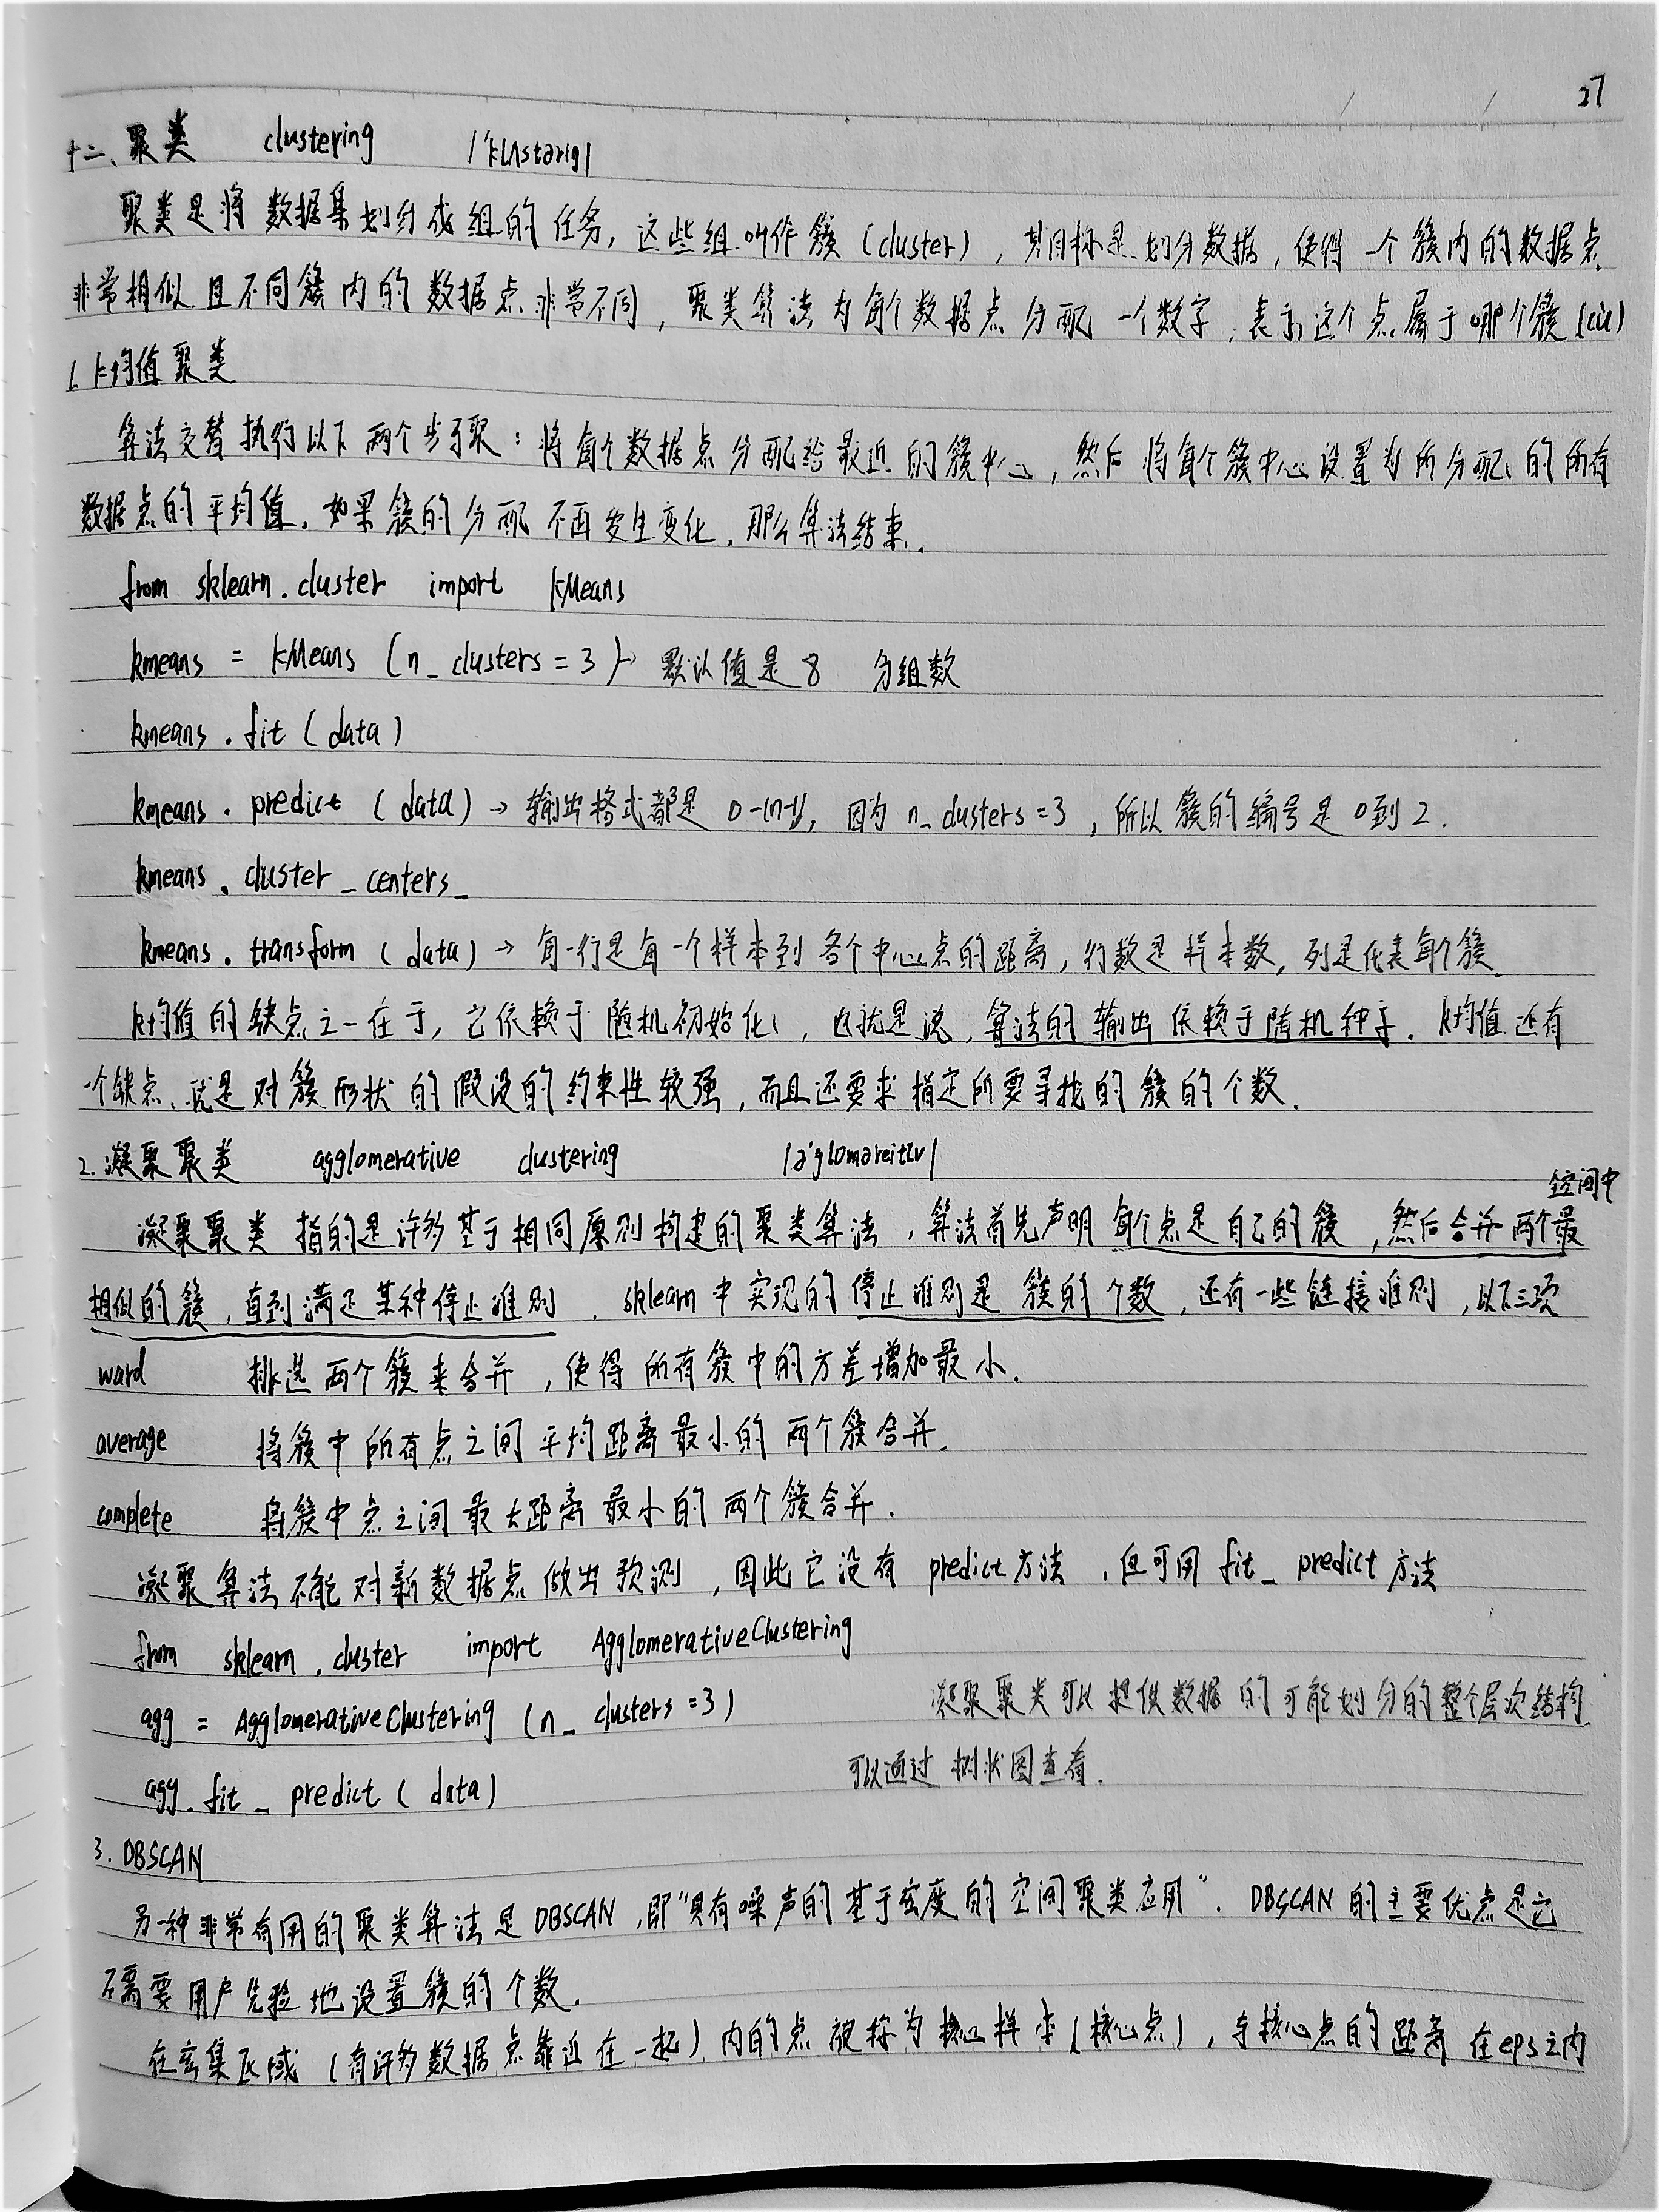 27
十二、聚类 clustering /ˈklʌstərɪŋ/
聚类是将数据集划分成组的任务，这些组叫作簇（cluster），其目标是划分数据，使得一个簇内的数据点
非常相似且不同簇内的数据点非常不同，聚类算法为每个数据点分配一个数字，表示这个点属于哪个簇(cù)
1. k均值聚类
算法交替执行以下两个步骤：将每个数据点分配给最近的簇中心，然后将每个簇中心设置为所分配的所有
数据点的平均值，如果簇的分配不再发生变化，那么算法结束。
from sklearn.cluster import KMeans
kmeans = KMeans (n_clusters = 3) → 默认值是8 分组数
kmeans.fit (data)
kmeans.predict (data) → 输出格式都是 0-(n-1)，因为 n_clusters=3，所以簇的编号是0到2.
kmeans.cluster_centers_
kmeans.transform (data) → 每一行是每一个样本到各个中心点的距离，行数是样本数，列是代表每个簇
k均值的缺点之一在于，它依赖于随机初始化，也就是说，算法的输出依赖于随机种子．k均值还有
一个缺点，就是对簇形状的假设的约束性较强，而且还要求指定所要寻找的簇的个数．
2. 凝聚聚类 agglomerative clustering /əˈɡlɒməreɪtɪv/
空间中
凝聚聚类指的是许多基于相同原则构建的聚类算法，算法首先声明每个点是自己的簇，然后合并两个最
相似的簇，直到满足某种停止准则．sklearn中实现的停止准则是簇的个数，还有一些链接准则，以下三项
ward 挑选两个簇来合并，使得所有簇中的方差增加最小．
average 将簇中所有点之间平均距离最小的两个簇合并．
complete 将簇中点之间最大距离最小的两个簇合并．
凝聚算法不能对新数据点做出预测，因此它没有predict方法，但可用fit_predict方法
from sklearn.cluster import AgglomerativeClustering
agg = AgglomerativeClustering (n_clusters=3) 凝聚聚类可以提供数据的可能划分的整个层次结构
agg.fit_predict (data) 可以通过树状图查看．
3. DBSCAN
另一种非常有用的聚类算法是DBSCAN，即“具有噪声的基于密度的空间聚类应用”．DBSCAN的主要优点是它
不需要用户先验地设置簇的个数．
在密集区域（有许多数据点靠近在一起）内的点被称为核心样本（核心点），与核心点的距离在eps之内